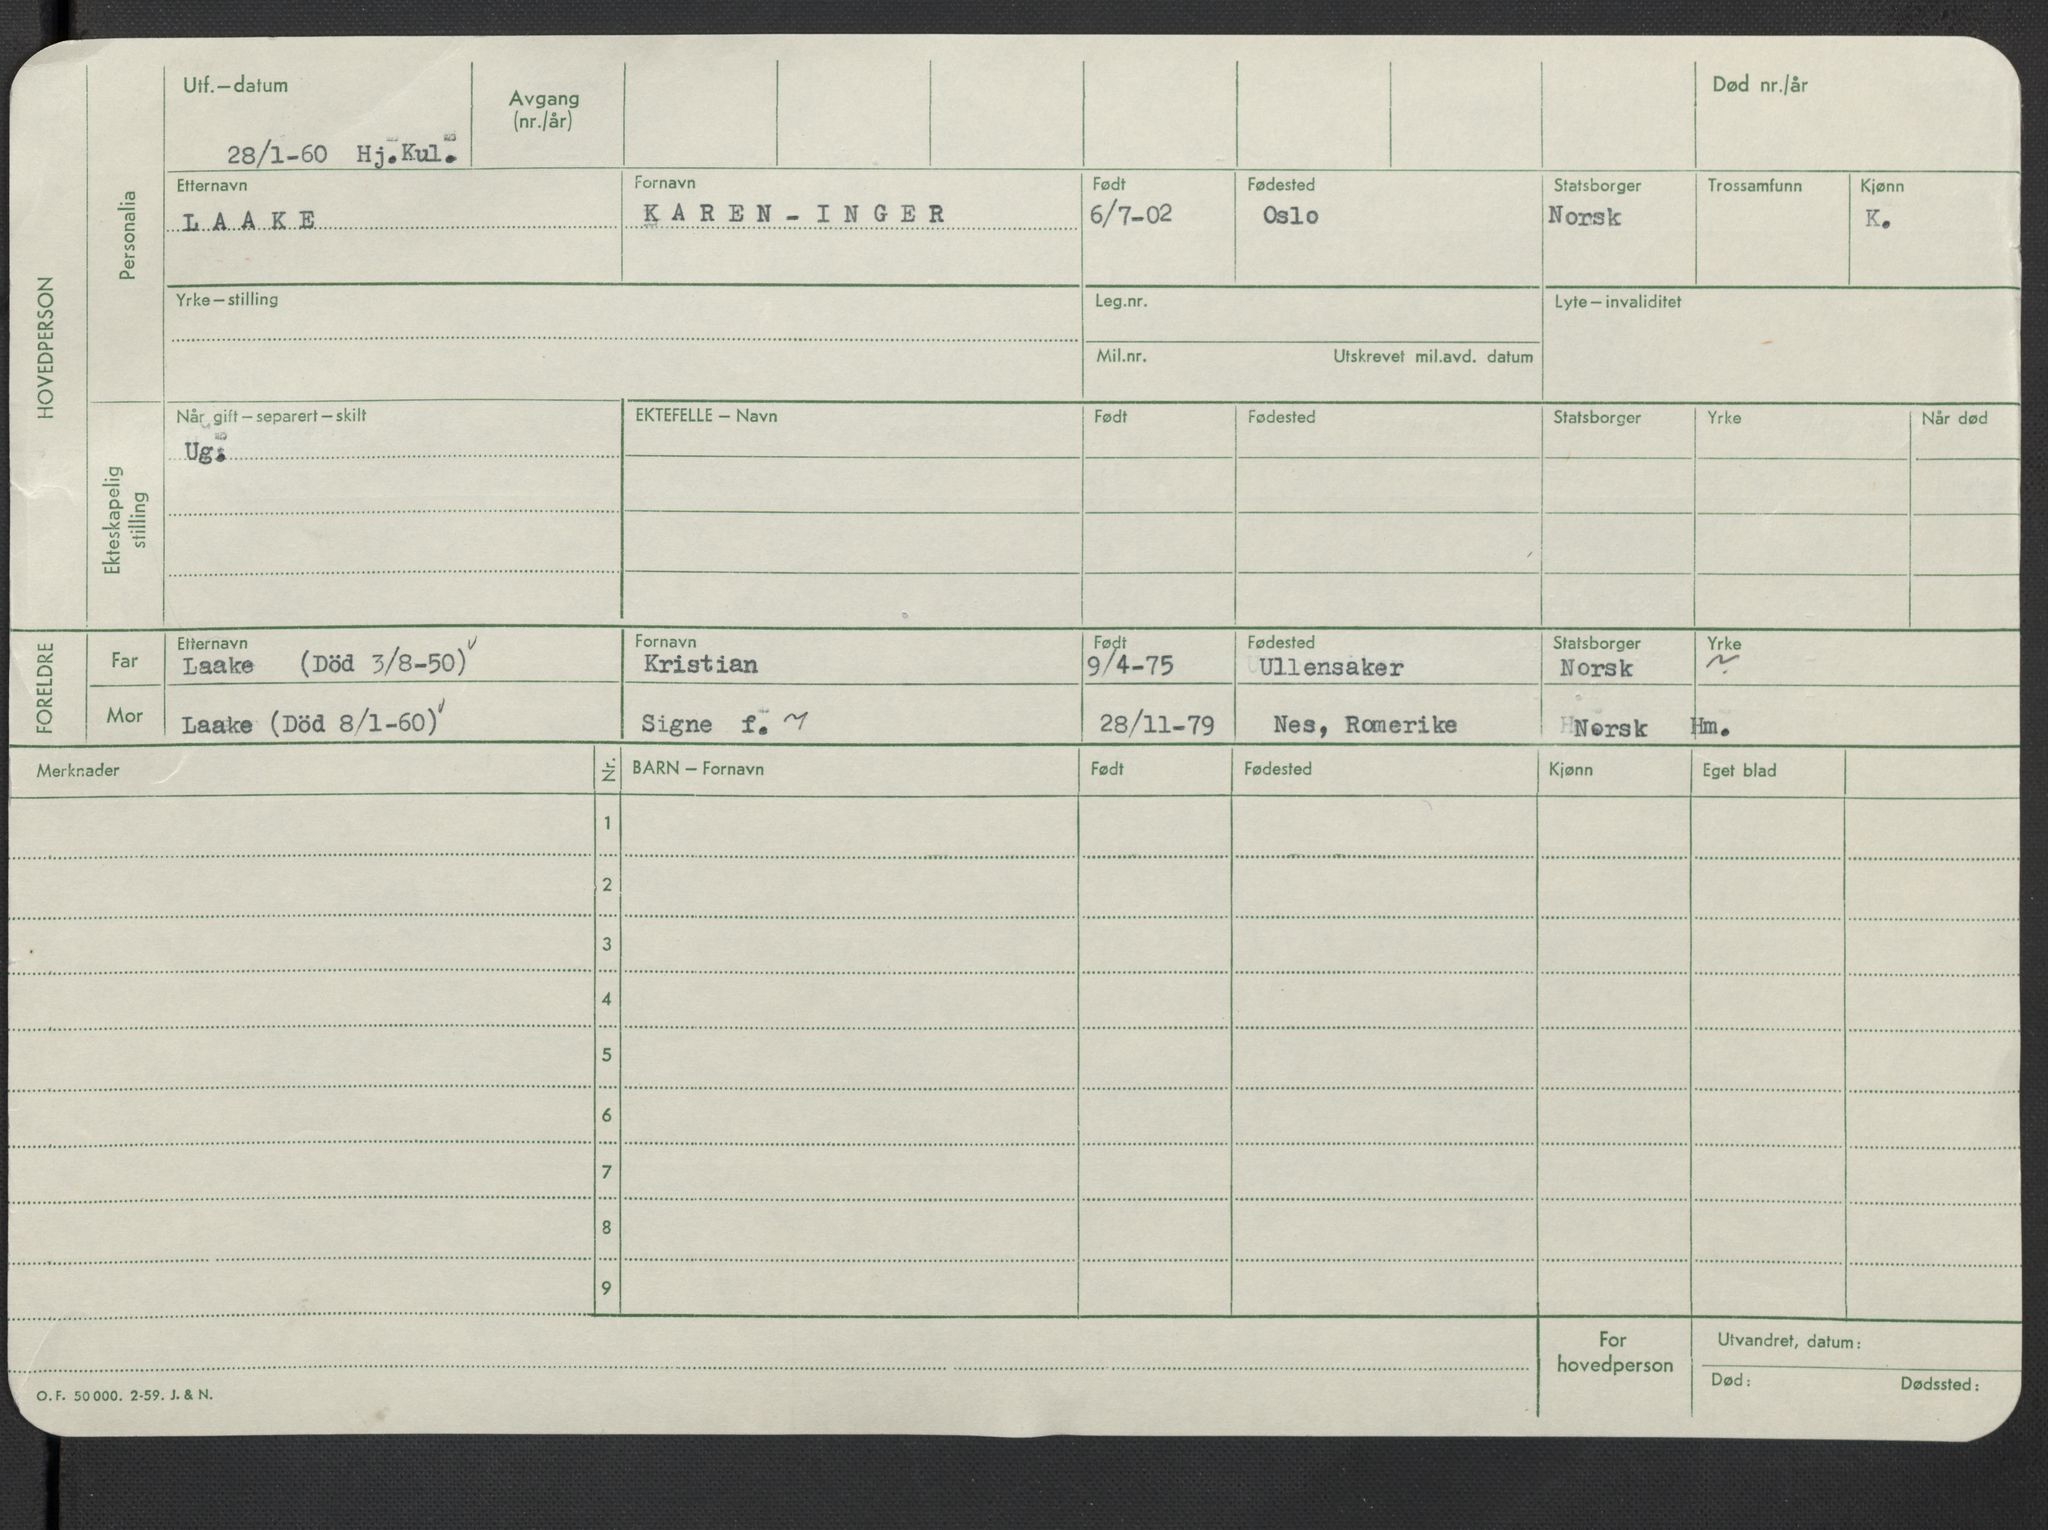 Utf.—datum
Avgang
(nr./år)
Død nr./år
28/1-60 Hj.Kul.
HOVEDPERSON
Personalia
Etternavn Fornavn Født Fødested Statsborger Trossamfunn Kjønn
LAAKE KAREN-INGER 6/7-02 Oslo Norsk K.
Yrke—stilling Leg.nr. Lyte—invaliditet
Mil.nr. Utskrevet mil.avd. datum
Ekteskapelig
stilling
Når gift—separert—skilt EKTEFELLE — Navn Født Fødested Statsborger Yrke Når død
Ug.
FORELDRE
Etternavn Fornavn Født Fødested Statsborger Yrke
Far Laake (Död 3/8-50) Kristian 9/4-75 Ullensaker Norsk
Mor Laake (Död 8/1-60) Signe f. 28/11-79 Nes, Romerike Norsk Hm.
Merknader Nr. BARN — Fornavn Født Fødested Kjønn Eget blad
1
2
3
4
5
6
7
8
9
For
hovedperson
Utvandret, datum:
Død: Dødssted:
O.F. 50 000. 2-59. J. & N.